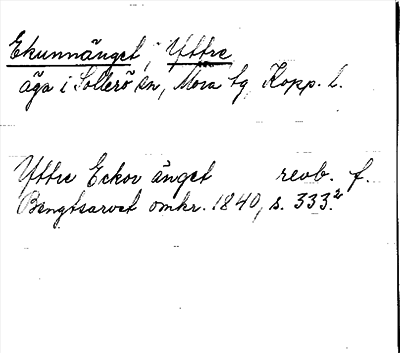 Ekunnänget, Yttre
äga i Sollerö sn, Mora tg Kopp. L.
Yttre Eckov änget revb. f.
Bengtsarvet omkr. 1840, s. 333.²